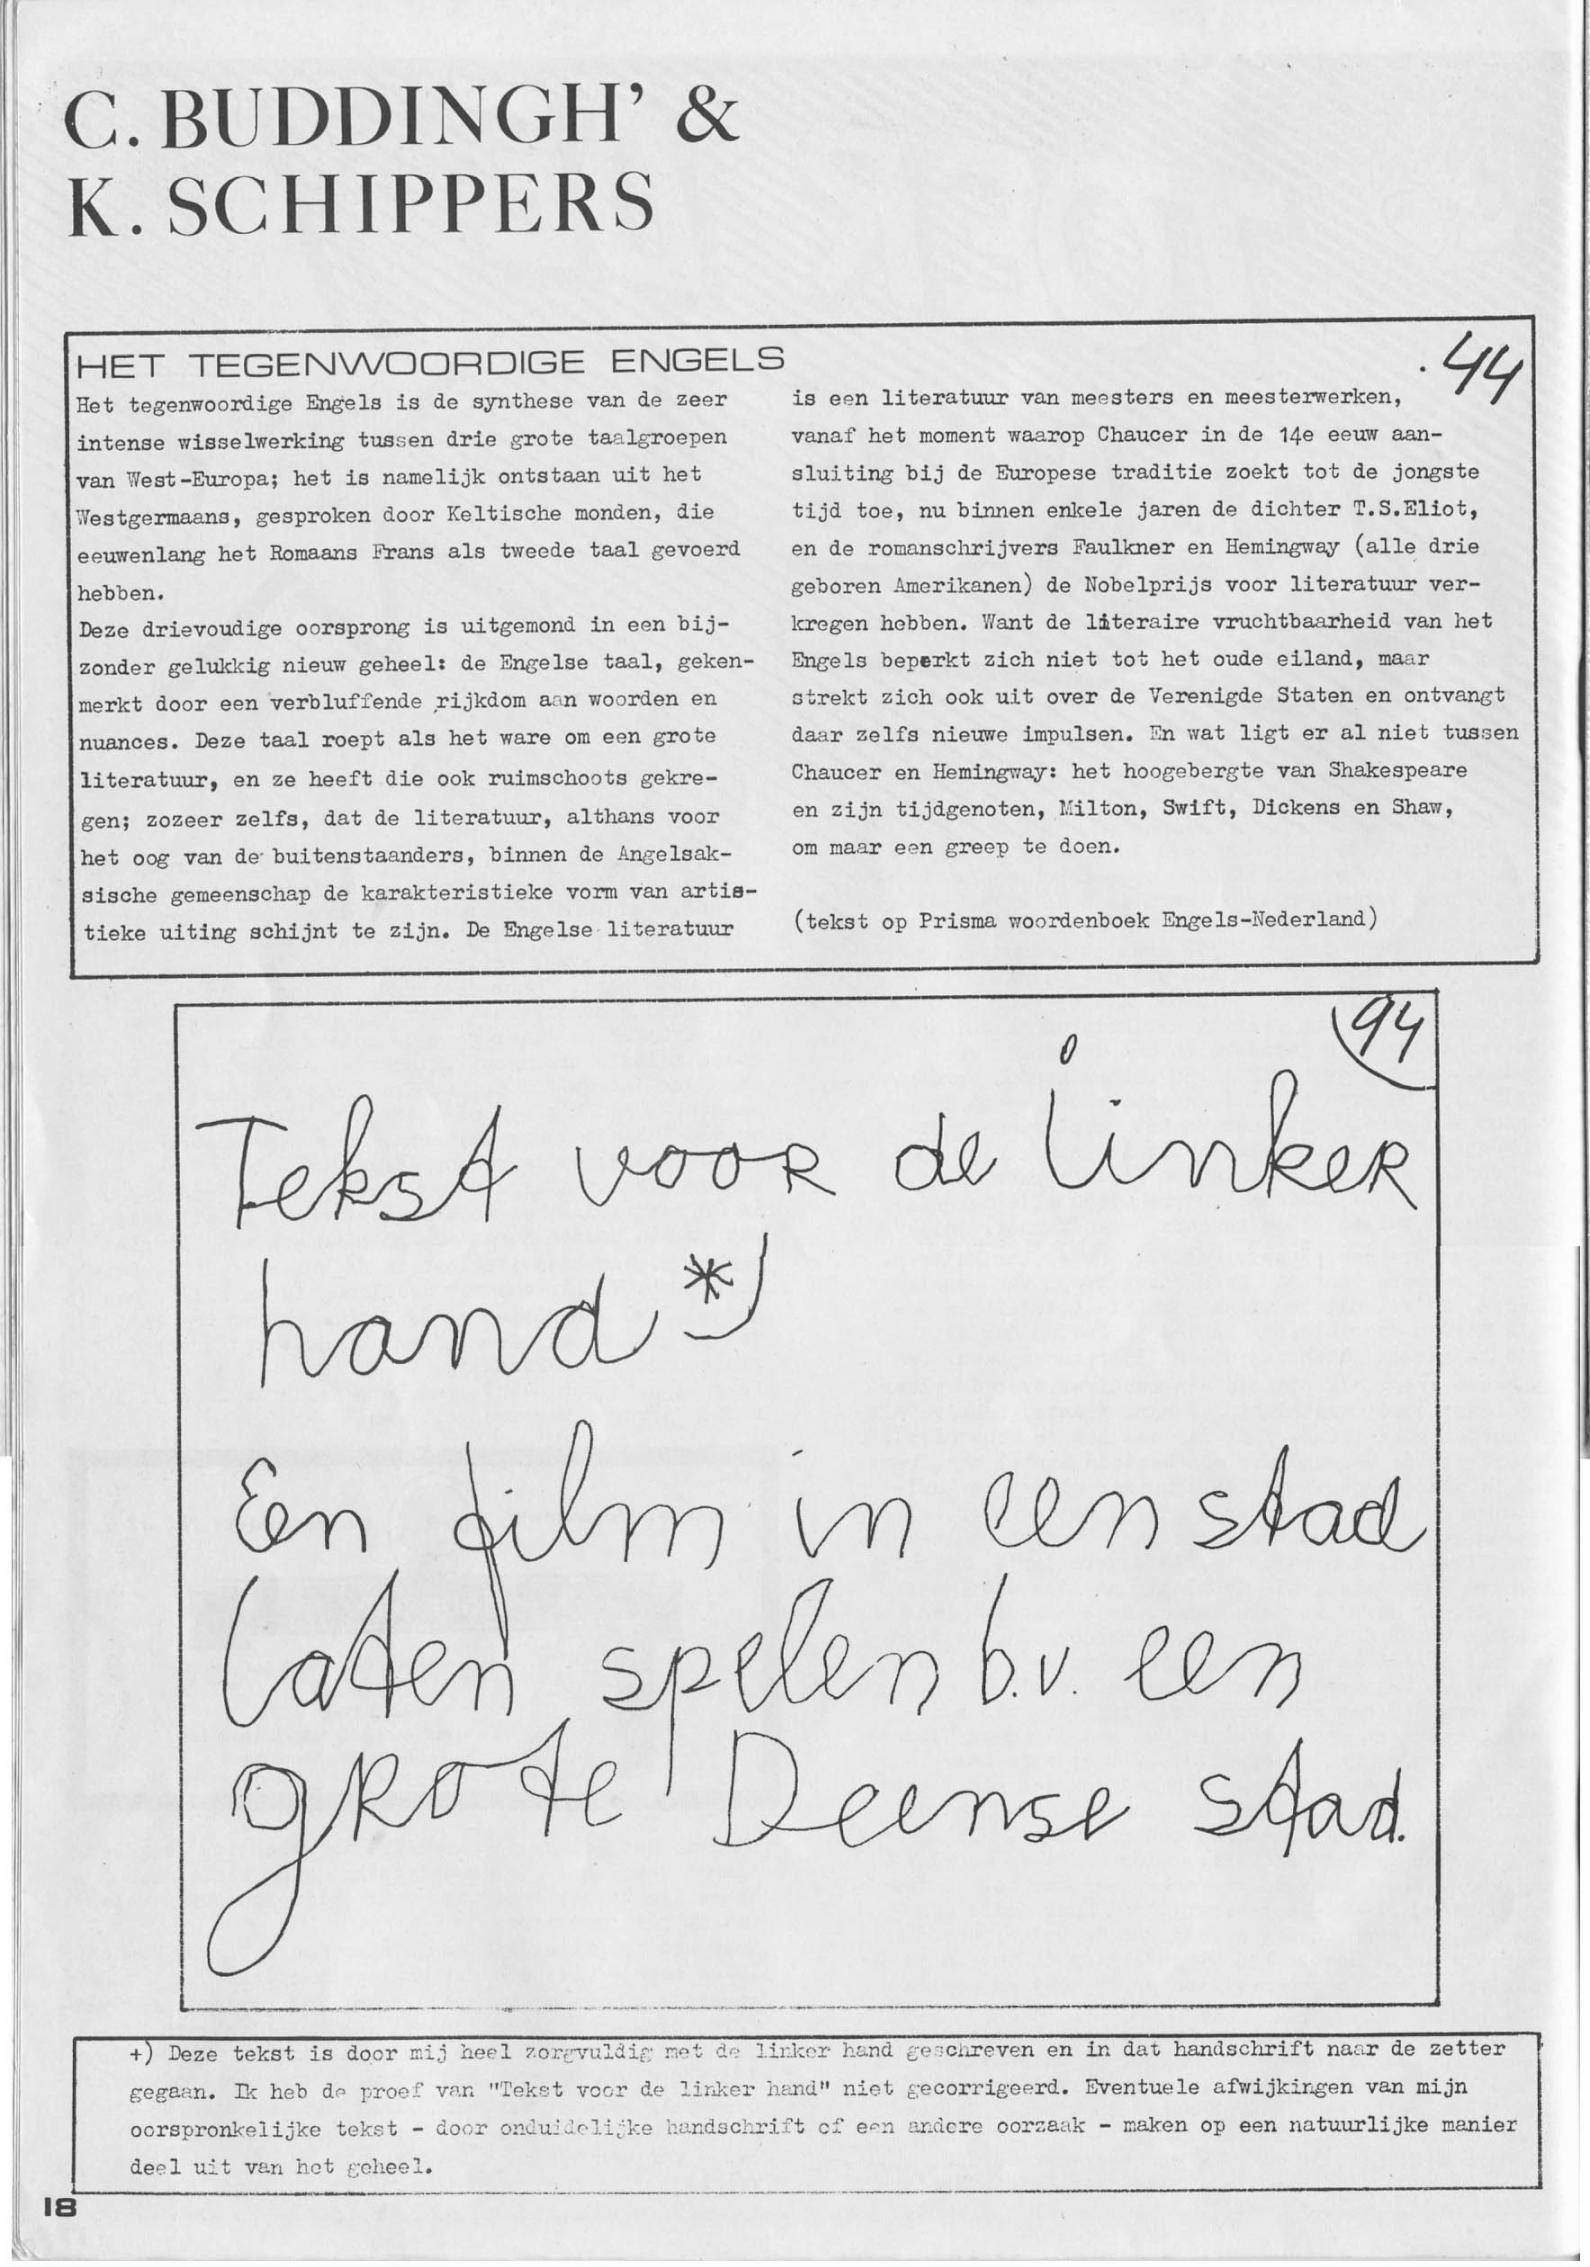 C. BUDDINGH' &
K. SCHIPPERS
HET TEGENWOORDIGE ENGELS
Het tegenwoordige Engels is de synthese van de zeer
intense wisselwerking tussen drie grote taalgroepen
van West-Europa; het is namelijk ontstaan uit het
Westgermaans, gesproken door Keltische monden, die
eeuwenlang het Romaans Frans als tweede taal gevoerd
hebben.
Deze drievoudige oorsprong is uitgemond in een bij-
zonder gelukkig nieuw geheel: de Engelse taal, geken-
merkt door een verbluffende rijkdom aan woorden en
nuances. Deze taal roept als het ware om een grote
literatuur, en ze heeft die ook ruimschoots gekre-
gen; zozeer zelfs, dat de literatuur, althans voor
het oog van de buitenstaanders, binnen de Angelsak-
sische gemeenschap de karakteristieke vorm van artis-
tieke uiting schijnt te zijn. De Engelse literatuur
.44
is een literatuur van meesters en meesterwerken,
vanaf het moment waarop Chaucer in de 14e eeuw aan-
sluiting bij de Europese traditie zoekt tot de jongste
tijd toe, nu binnen enkele jaren de dichter T.S.Eliot,
en de romanschrijvers Faulkner en Hemingway (alle drie
geboren Amerikanen) de Nobelprijs voor literatuur ver-
kregen hebben. Want de literaire vruchtbaarheid van het
Engels beperkt zich niet tot het oude eiland, maar
strekt zich ook uit over de Verenigde Staten en ontvangt
daar zelfs nieuwe impulsen. En wat ligt er al niet tussen
Chaucer en Hemingway: het hoogebergte van Shakespeare
en zijn tijdgenoten, Milton, Swift, Dickens en Shaw,
om maar een greep te doen.
(tekst op Prisma woordenboek Engels-Nederland)
94
Tekst voor de linker
hand *)
Een film in een stad
laten spelen b.v. een
grote Deense stad.
+) Deze tekst is door mij heel zorgvuldig met de linker hand geschreven en in dat handschrift naar de zetter
gegaan. Ik heb de proef van "Tekst voor de linker hand" niet gecorrigeerd. Eventuele afwijkingen van mijn
oorspronkelijke tekst - door onduidelijke handschrift of een andere oorzaak - maken op een natuurlijke manier
deel uit van het geheel.
18